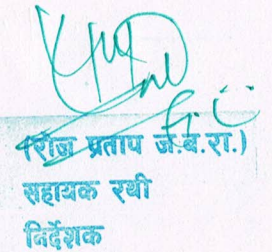 (रोज प्रताप जं.ब.रा.)
सहायक रथी
निर्देशक